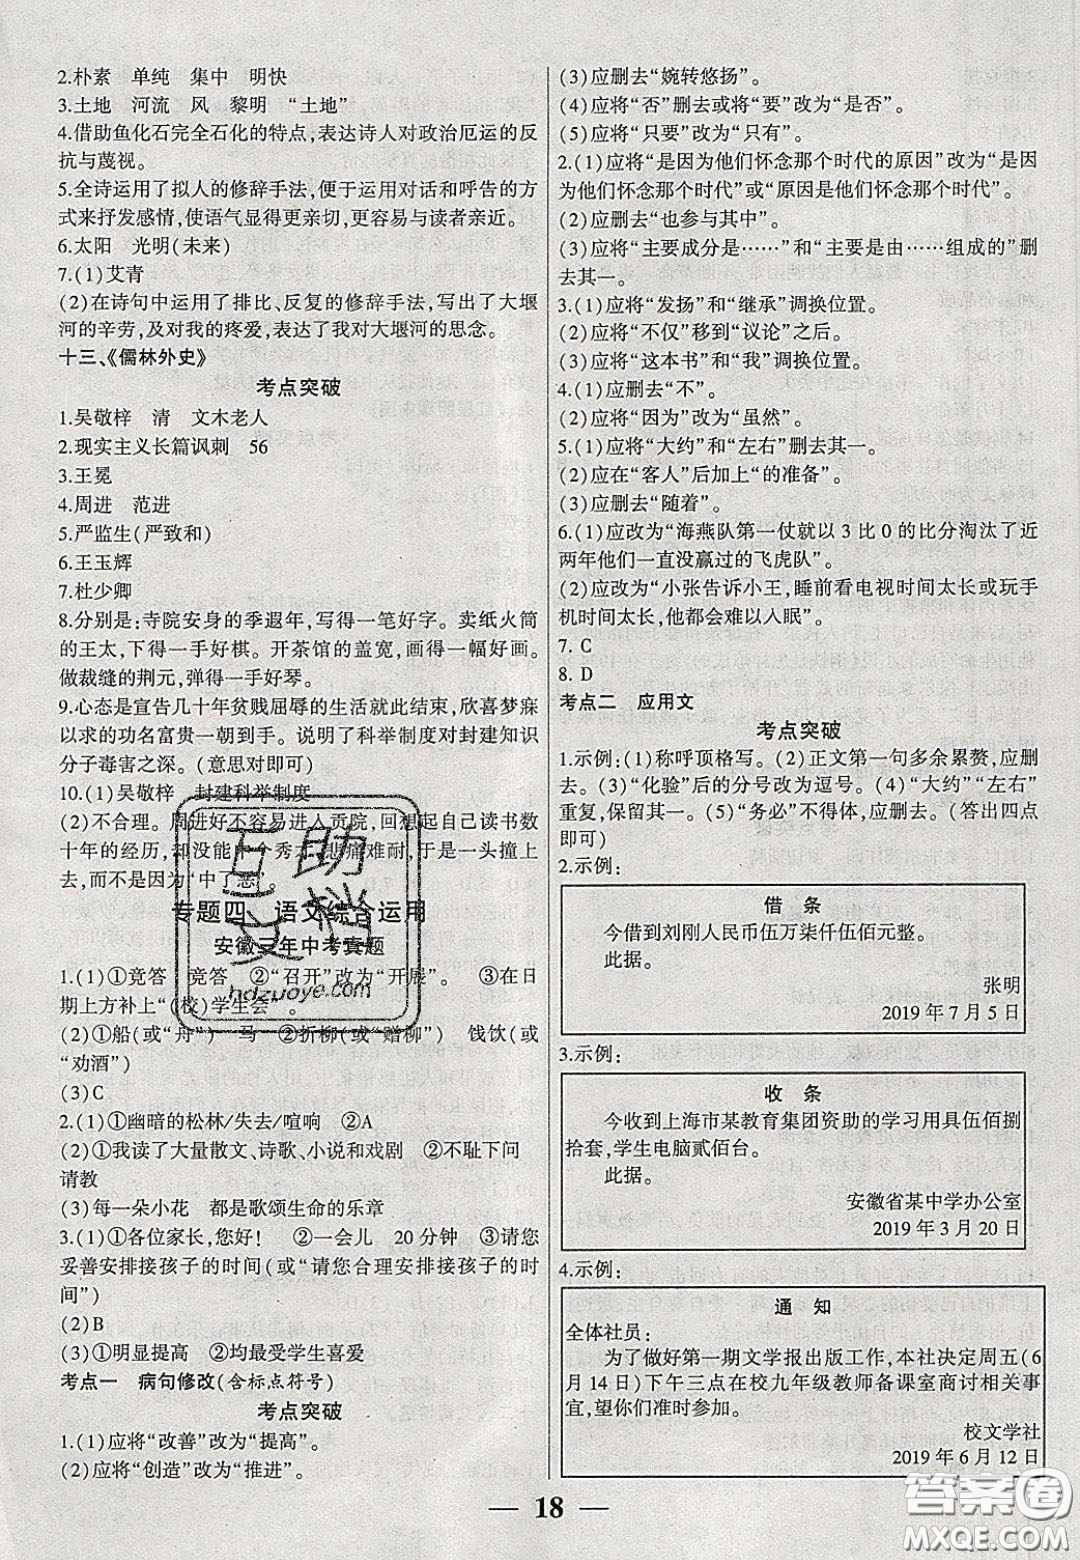 2.朴素　单纯　集中　明快
3.土地　河流　风　黎明　“土地”
4.借助鱼化石完全石化的特点,表达诗人对政治厄运的反
抗与蔑视。
5.全诗运用了拟人的修辞手法,便于运用对话和呼告的方
式来抒发感情,使语气显得更亲切,更容易与读者亲近。
6.太阳　光明(未来)
7.(1)艾青
(2)在诗句中运用了排比、反复的修辞手法,写出了大堰
河的辛劳,及对我的疼爱,表达了我对大堰河的思念。
十三、《儒林外史》
考点突破
1.吴敬梓　清　文木老人
2.现实主义长篇讽刺　56
3.王冕
4.周进　范进
5.严监生(严致和)
6.王玉辉
7.杜少卿
8.分别是:寺院安身的季遐年,写得一笔好字。卖纸火筒
的王太,下得一手好棋。开茶馆的盖宽,画得一幅好画。
做裁缝的荆元,弹得一手好琴。
9.心态是宣告几十年贫贱屈辱的生活就此结束,欣喜梦寐
以求的功名富贵一朝到手。说明了科举制度对封建知识
分子毒害之深。(意思对即可)
10.(1)吴敬梓　封建科举制度
(2)不合理。周进好不容易进人贡院,回想起自己读书数
十年的经历,却没能中个秀才,悲痛难耐,于是一头撞上
去,而不是因为“中了恶”。
专题四　语文综合运用
安徽三年中考真题
1.(1)①竞答　竞答　②“召开”改为“开展”。　③在日
期上方补上“(校)学生会”。
(2)①船(或“舟”)　马　②折柳(或“赠柳”)　饯饮(或
“劝酒”)
(3)C
2.(1)①幽暗的松林/失去/喧响　②A
(2)①我读了大量散文、诗歌、小说和戏剧　②不耻下问
请教
(3)每一朵小花　都是歌颂生命的乐章
3.(1)①各位家长,您好!　②一会儿　20分钟　③请您
妥善安排接孩子的时间(或“请您合理安排接孩子的时
间”)
(2)B
(3)①明显提高　②均最受学生喜爱
考点一　病句修改(含标点符号)
考点突破
1.(1)应将“改善”改为“提高”。
(2)应将“创造”改为“推进”。
(3)应删去“婉转悠扬”。
(4)应将“否”删去或将“要”改为“是否”。
(5)应将“只要”改为“只有”。
2.(1)应将“是因为他们怀念那个时代的原因”改为“是因
为他们怀念那个时代”或“原因是他们怀念那个时代”。
(2)应删去“也参与其中”。
(3)应将“主要成分是……”和“主要是由……组成的”删
去其一。
3.(1)应将“发扬”和“继承”调换位置。
(2)应将“不仅”移到“议论”之后。
(3)应将“这本书”和“我”调换位置。
4.(1)应删去“不”。
(2)应将“因为”改为“虽然”。
5.(1)应将“大约”和“左右”删去其一。
(2)应在“客人”后加上“的准备”。
(3)应删去“随着”。
6.(1)应改为“海燕队第一仗就以3比0的比分淘汰了近
两年他们一直没赢过的飞虎队”。
(2)应改为“小张告诉小王,睡前看电视时间太长或玩手
机时间太长,他都会难以入眠”。
7. C
8. D
考点二　应用文
考点突破
1.示例:(1)称呼顶格写。(2)正文第一句多余累赘,应删
去。(3)“化验”后的分号改为逗号。(4)“大约”“左右”
重复,保留其一。(5)“务必”不得体,应删去。(答出四点
即可)
2.示例:
借　条
今借到刘刚人民币伍万柒仟伍佰元整。
此据。
张明
2019年7月5日
3.示例:
收　条
今收到上海市某教育集团资助的学习用具伍佰捌
拾套,学生电脑贰佰台。
此据。
安徽省某中学办公室
2019年3月20日
4.示例:
通　知
全体社员:
为了做好第一期文学报出版工作,本社决定周五(6
月14日)下午三点在校九年级教师备课室商讨相关事
宜,望你们准时参加。
校文学社
2019年6月12日
18
互助文档
hdzuoye.com
答案圈
MXQE.COM